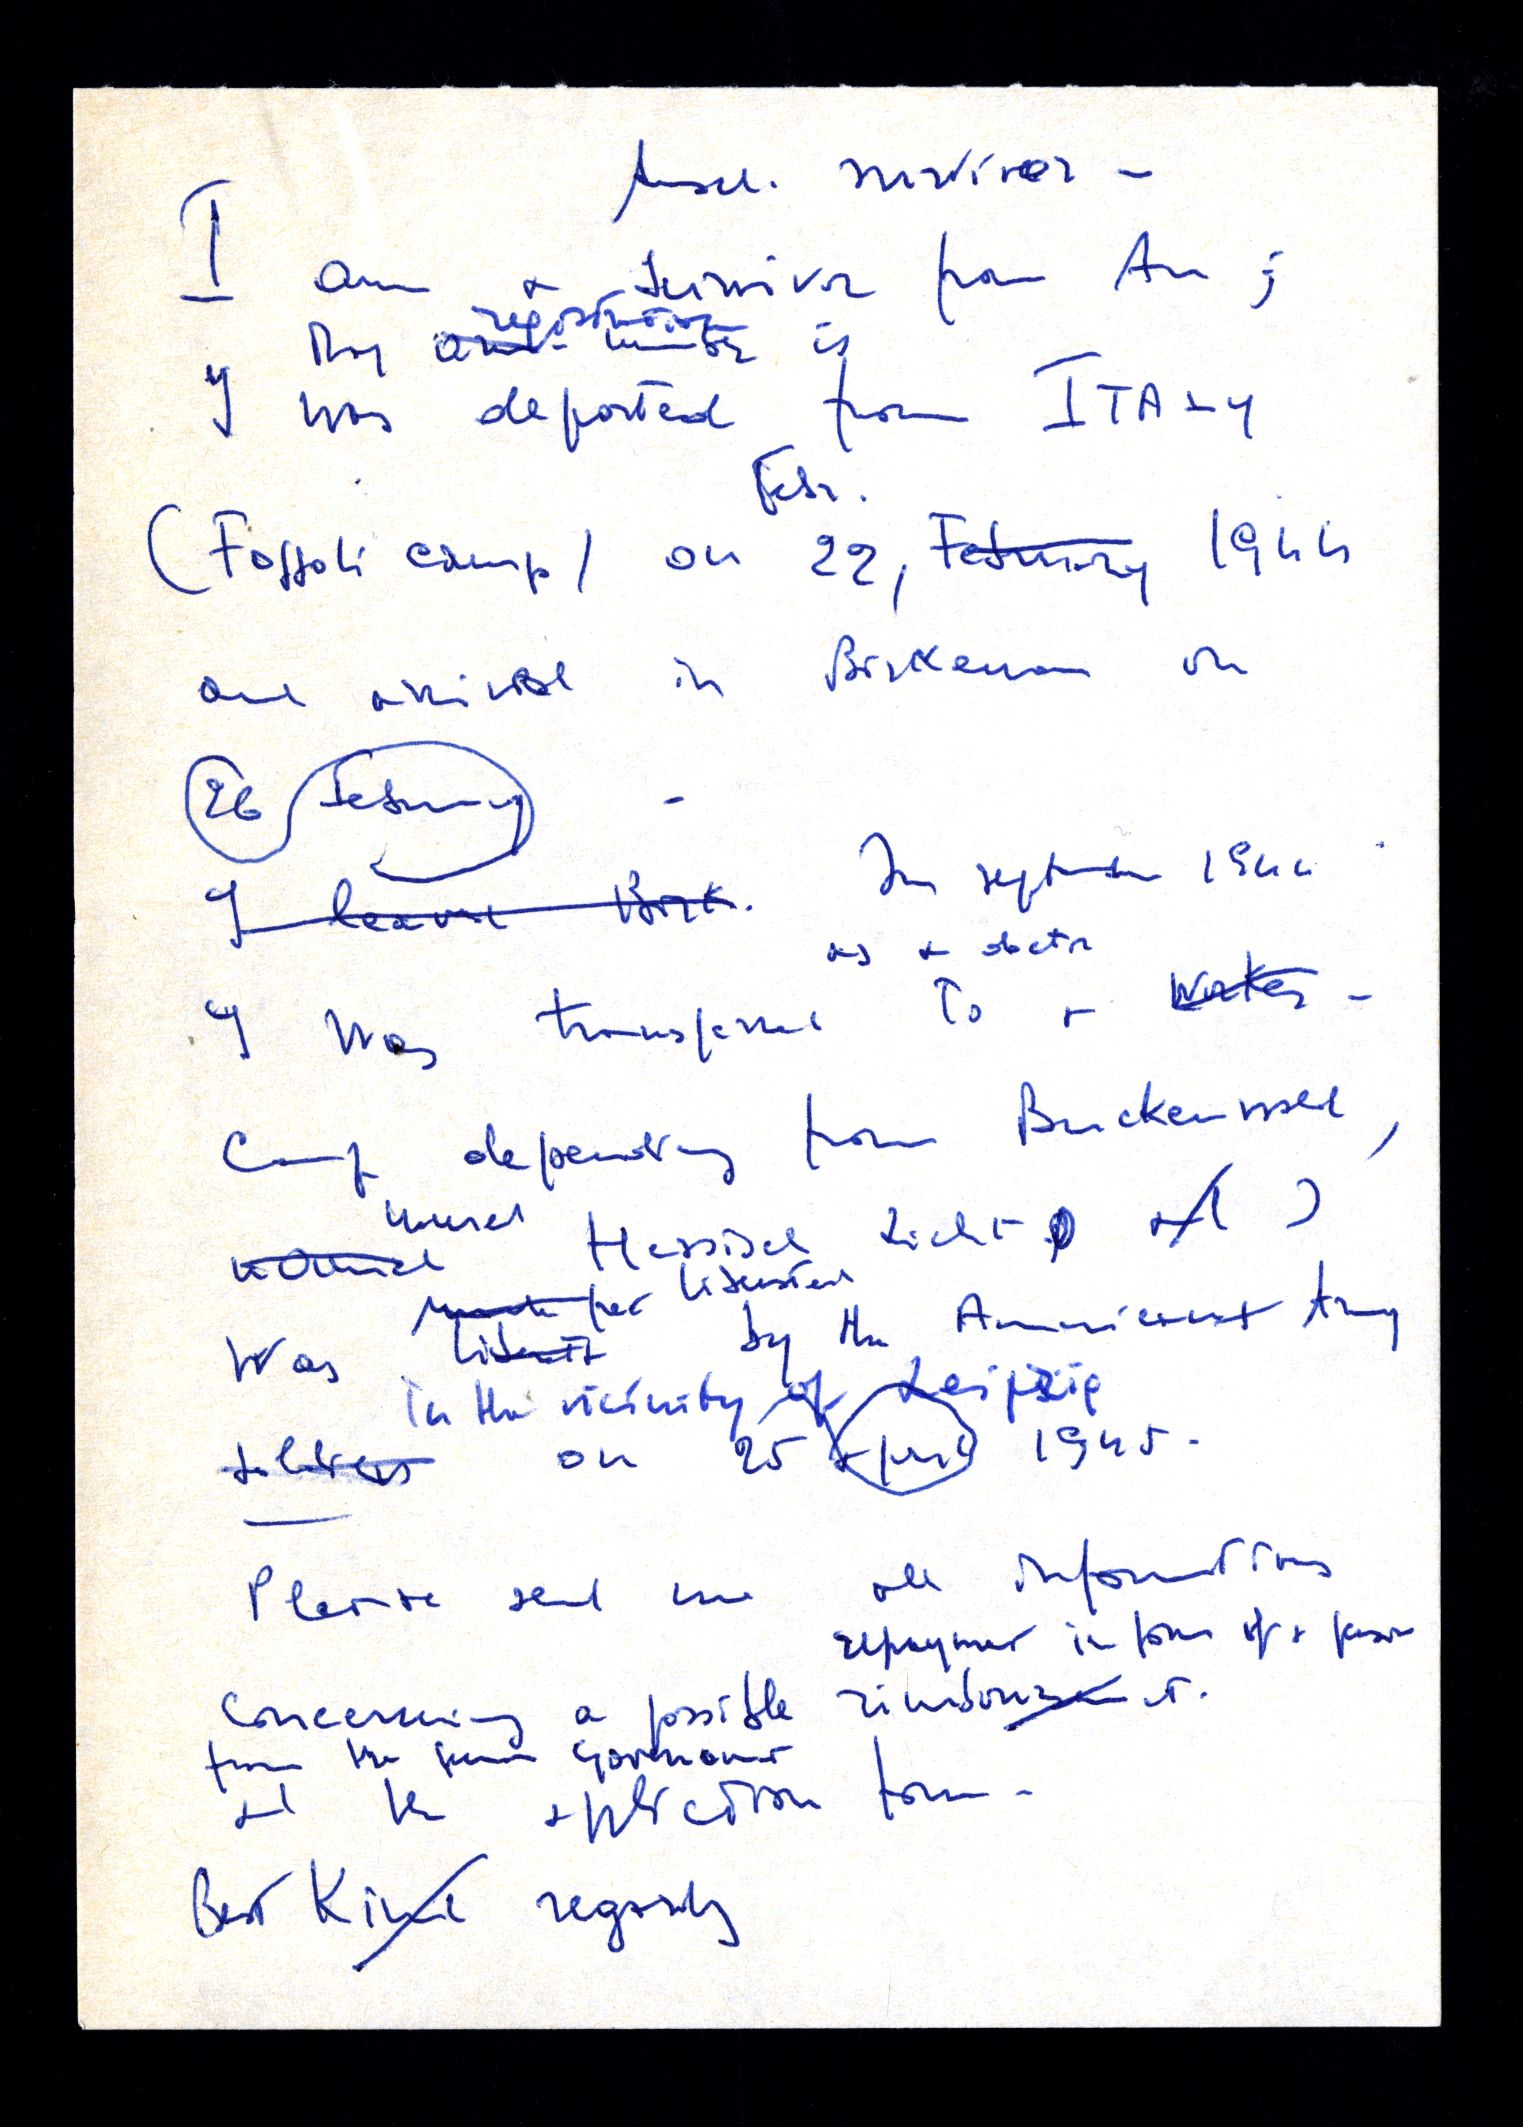 Ausch. survivor -
I am a survivor from Au ;
registration
My number is
I was deported from ITALY
Febr.
(Fossoli camp) on 22, February 1944
and arrived in Birkenau on
26 February -
I leave Birk. In september 1944
as a doctor
I was transferred to a Worker -
Camp depending from Buckenwald,
named Hessisch Licht. and I
liberated
was liberat by the Americans Army
in the vicinity of Leipzig
soldiers on 25 April 1945.
Please send me all informations
repayment in form of a
concerning a possible
from the Government
and the application form -
Best Kind regards